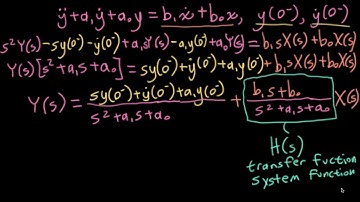 ÿ + a₁ẏ + a₀y = b₁ẋ + b₀x, y(0⁻), ẏ(0⁻)
s²Y(s) - sy(0⁻) - ẏ(0⁻) + a₁sY(s) - a₁y(0⁻) + a₀Y(s) = b₁sX(s) + b₀X(s)
Y(s)[s² + a₁s + a₀] = sy(0⁻) + ẏ(0⁻) + a₁y(0⁻) + b₁sX(s) + b₀X(s)
Y(s) = (sy(0⁻) + ẏ(0⁻) + a₁y(0⁻)) / (s² + a₁s + a₀) + (b₁s + b₀) / (s² + a₁s + a₀) X(s)
H(s)
transfer fuction
system function